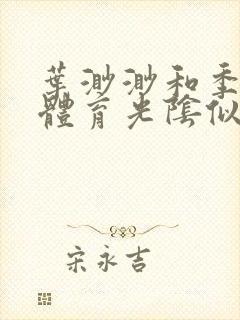 葉渺渺和季
體育光陰似
宋永吉